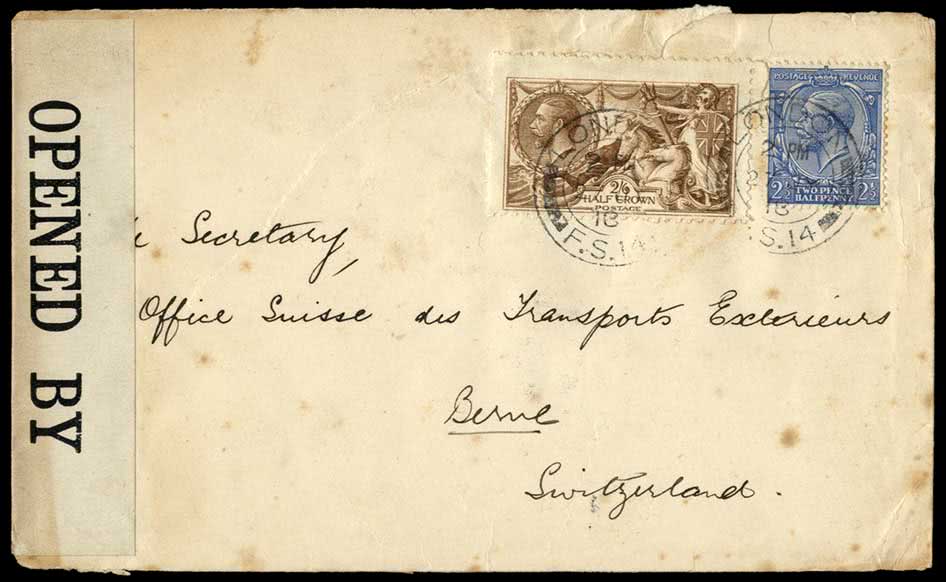 OPENED BY
POSTAGE & REVENUE
2/6
HALF CROWN
POSTAGE
2½ TWO PENCE HALFPENNY 2½
LONDON
2 PM
18
F.S.14
LONDON
2 PM
18
F.S.14
Secretary,
Office Suisse des Transports Exterieurs
Berne
Switzerland.